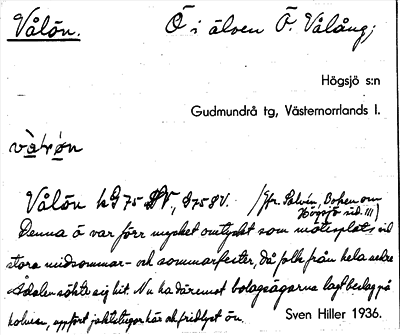 Vålön. Ö i älven Ö. Vålång;
Högsjö s:n
Gudmundrå tg, Västernorrlands l.
vàlø̀n
Vålön hD 75 SV, D75 8 V. /Jfr. Salvén, Boken om
Högsjö sid. 111)
Denna ö var förr mycket omtyckt som mötesplats vid
stora midsommar- och sommarfester, då folk från hela nedre
Ådalen sökte sig hit. Nu ha däremot bolagsägarna lagt beslag på
holmen, uppfört jaktstugor här och fridlyst ön.
Sven Hiller 1936.